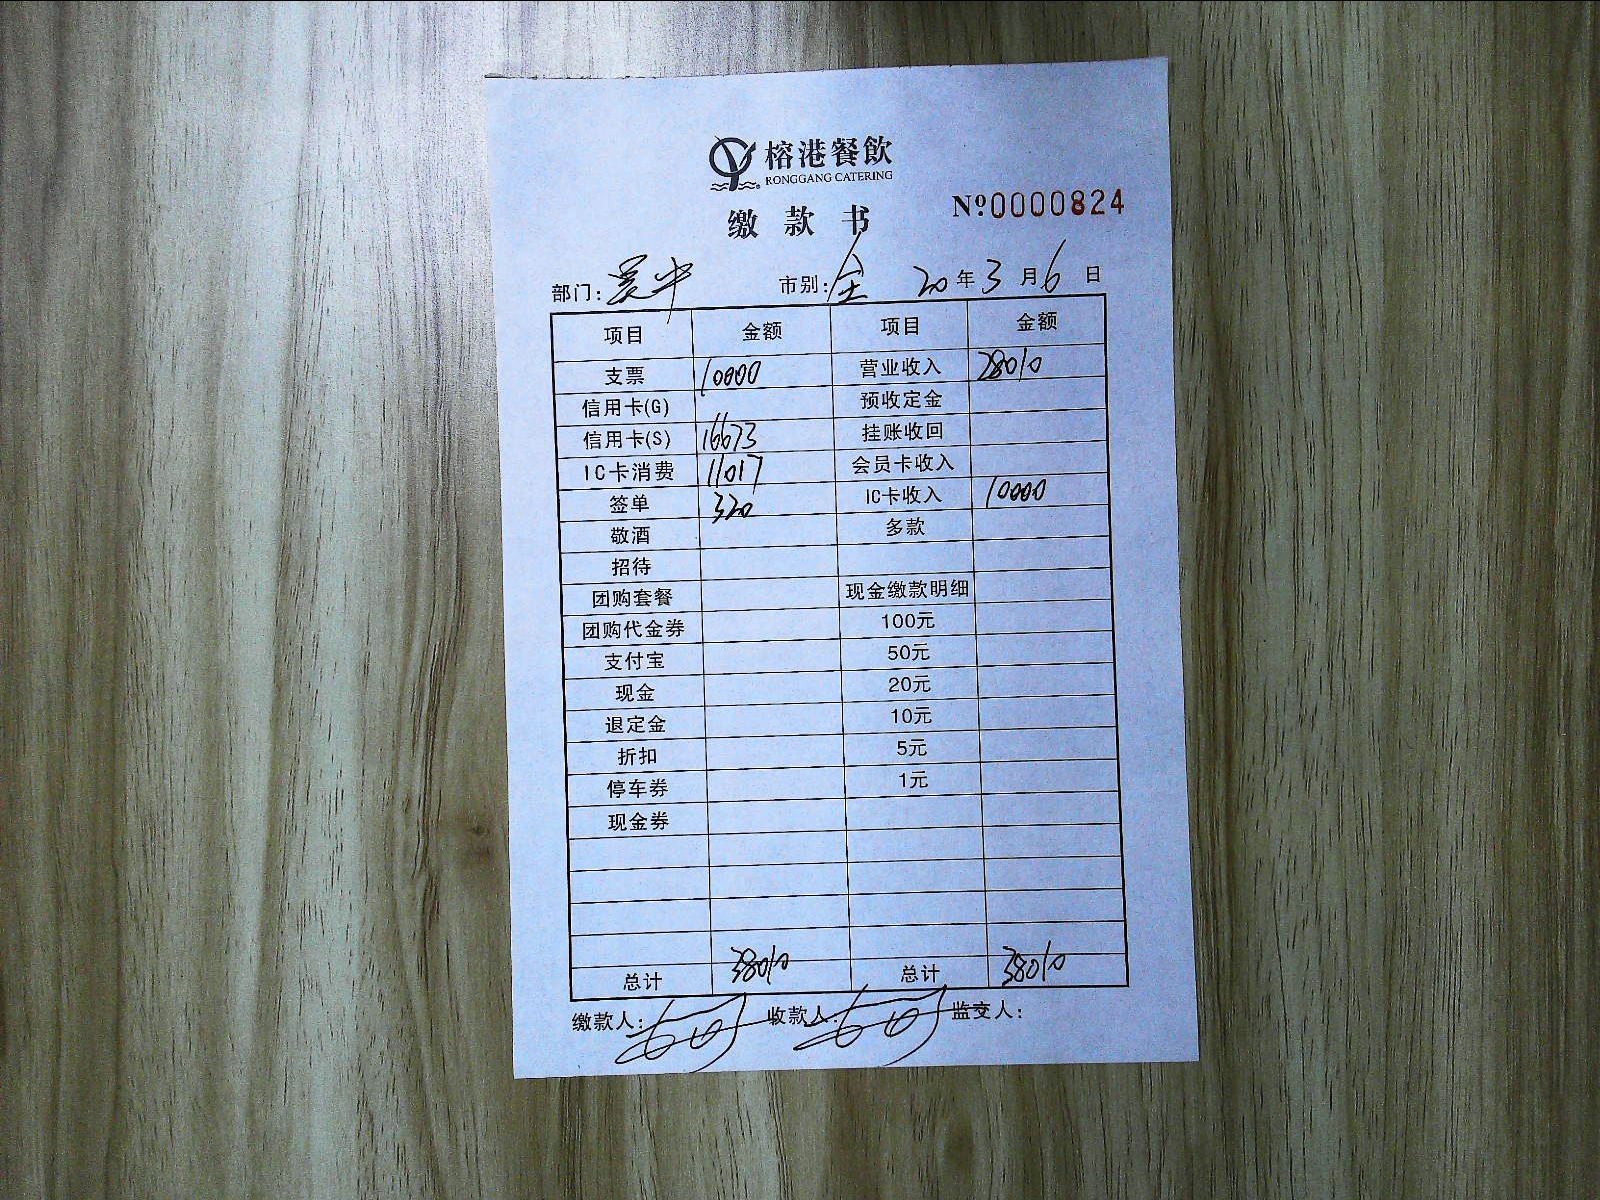 榕港餐飲
RONGGANG CATERING
缴款书
Nº0000824
部门: 吴中 市别: 全 20年3月6日
项目 金额 项目 金额
支票 10000 营业收入 28010
信用卡(G) 预收定金
信用卡(S) 16673 挂账收回
IC卡消费 11017 会员卡收入
签单 320 IC卡收入 10000
敬酒 多款
招待
团购套餐 现金缴款明细
团购代金券 100元
支付宝 50元
现金 20元
退定金 10元
折扣 5元
停车券 1元
现金券
总计 38010 总计 38010
缴款人: 收款人: 监交人: